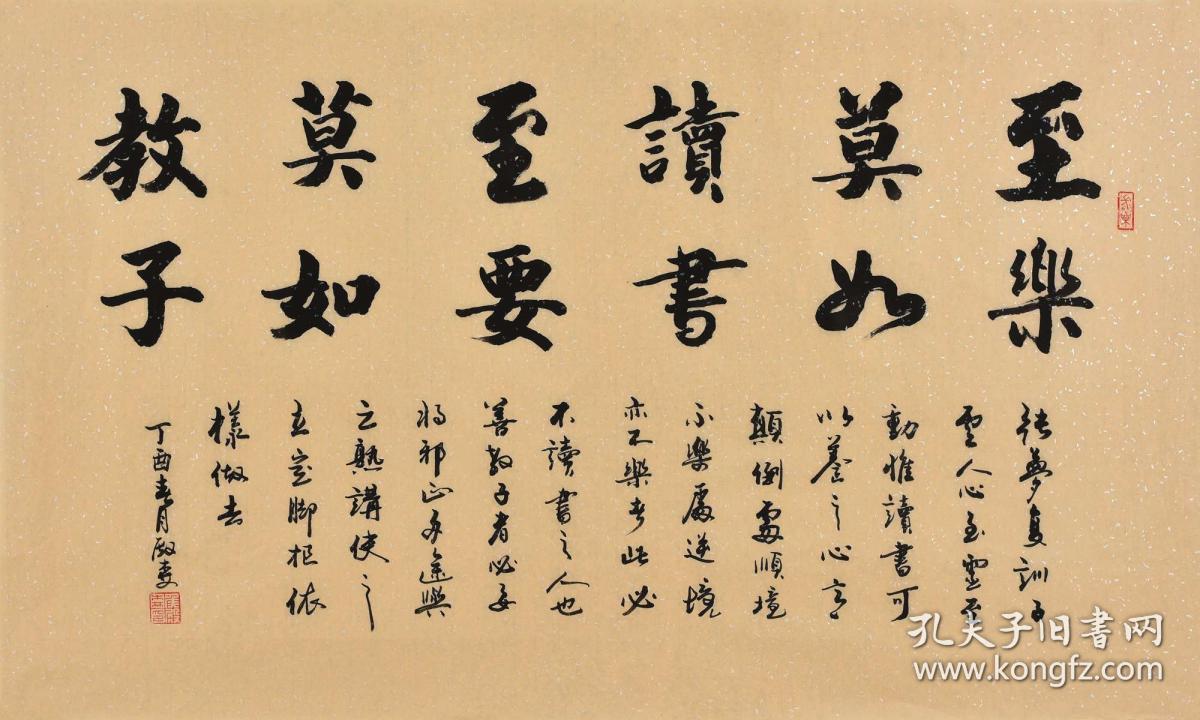 至樂
莫如
讀書
至要
莫如
教子
张夢复訓子
雲人心至靈至
動惟讀書可
以養之心
顛倒處順境
不樂處逆境
亦不樂者此必
不讀書之人也
善教子者必
將邪正多途與
之熟講使之
立定脚根依
樣做去
丁酉春月
孔夫子旧書网
www.kongfz.com